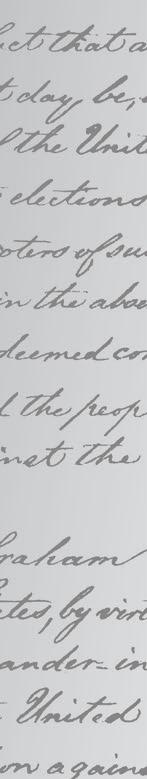 ect that a
t day, be,
f the Unit
elections
oters of su
in the abse
deemed con
d the peop
inst the
braham
ates, by virt
ander-in
United
ion agains